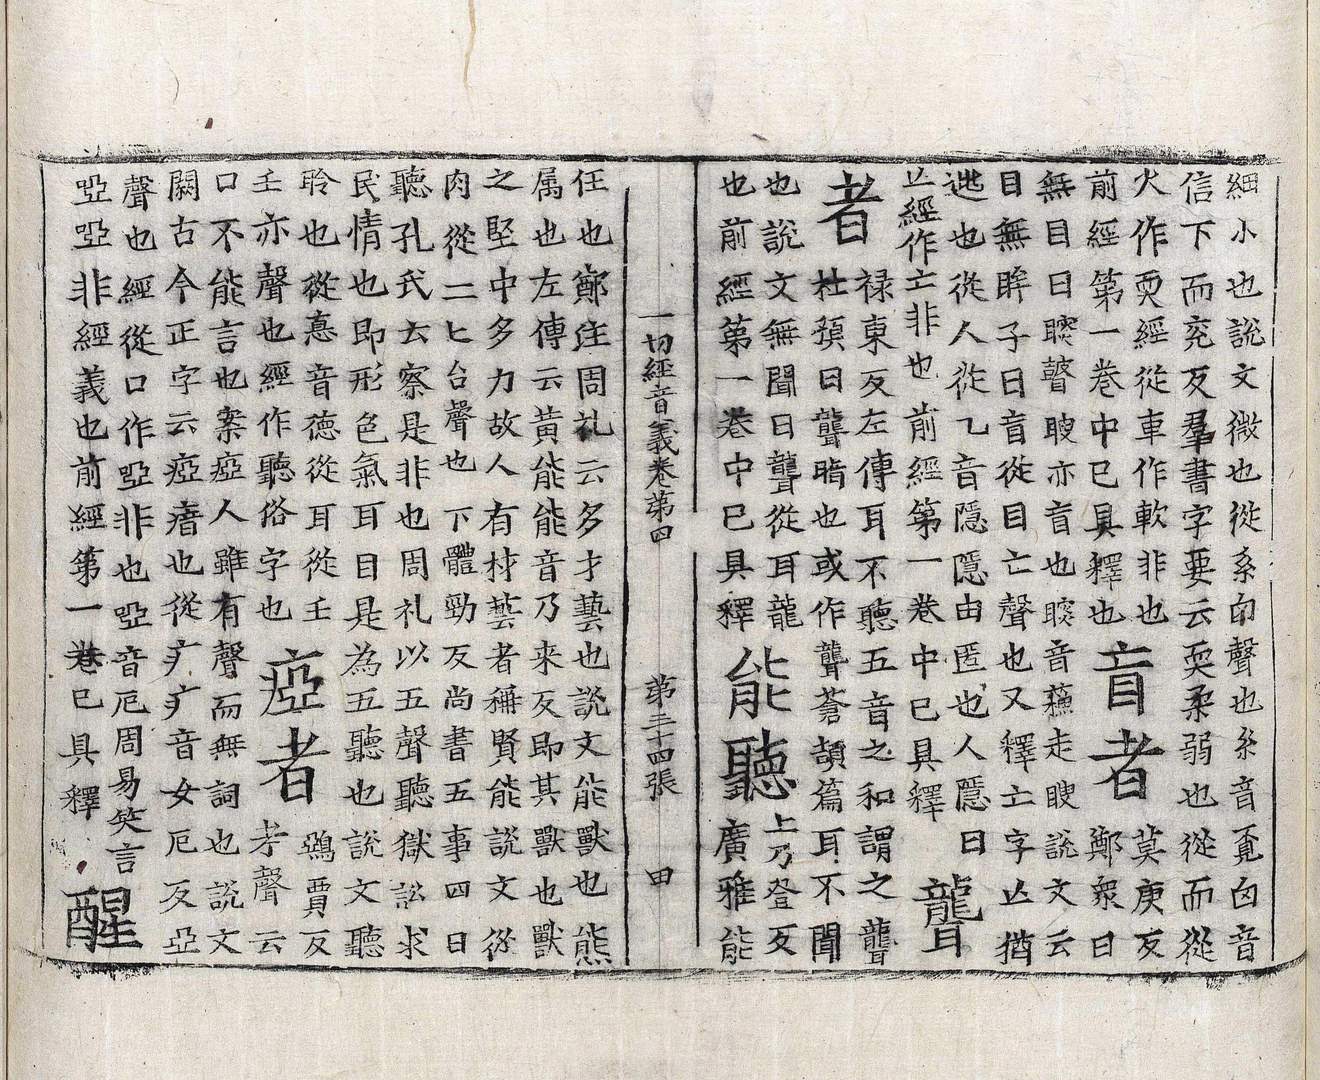 細小也說文微也從糸囟聲也糸音覓囟音
信下而兖反羣書字要云耎柔弱也從而從
火作耎經從車作軟非也
前經第一卷中已具釋也
盲者
莫庚反
鄭衆曰
無目曰瞍瞽䏂亦盲也瞍音蘓走䏂說文云
目無眸子曰盲從目亡聲也又釋亡字亾猶
逃也從人從乚音隱隱由匿也人隱曰
亾經作亡非也前經第一卷中已具釋
聾
者
祿東反左傳耳不聽五音之和謂之聾
杜預曰聾暗也或作聾蒼頡篇耳不聞
也說文無聞曰聾從耳龍
也前經第一卷中已具釋
能聽
上乃登反
廣雅能
一切經音義卷第四 第三十四張 田
任也鄭注周礼云多才藝也說文能獸也熊
属也左傳云黃能能音乃來反即其獸也獸
之堅中多力故人有材藝者稱賢能說文從
肉從二匕台聲也下體勁反尚書五事四曰
聽孔氏云察是非也周礼以五聲聽獄訟求
民情也即形色氣耳目是為五聽也說文聽
聆也從悳音德從耳從壬
壬亦聲也經作聽俗字也
瘂者
鵶賈反
考聲云
口不能言也案瘂人雖有聲而無詞也說文
闕古今正字云瘂瘖也從疒疒音女厄反亞
聲也經從口作啞非也啞音厄周易笑言
啞啞非經義也前經第一卷已具釋
醒